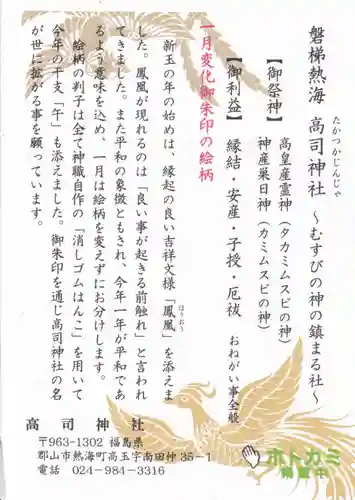 磐梯熱海 高司神社 ~むすびの神の鎮まる社~
たかつかじんじゃ
【御祭神】
高皇産霊神(タカミムスビの神)
神産巣日神(カミムスビの神)
【御利益】 縁結・安産・子授・厄祓 おねがい事全般
一月変化御朱印の絵柄
新玉の年の始めは、縁起の良い吉祥文様「鳳凰」を添えま
ほうおう
した。鳳凰が現れるのは「良い事が起きる前触れ」と言われ
てきました。また平和の象徴ともされ、今年一年が平和であ
るよう意味を込め、一月は絵柄を変えずにお分けします。
絵柄の判子は全て神職自作の「消しゴムはんこ」を用いて
今年の干支「午」も添えました。御朱印を通じ高司神社の名
が世に拡がる事を願っています。
高司神社
〒963-1302 福島県
郡山市熱海町高玉字南田仲35-1
電話 024-984-3316
ホトカミ
掲載中